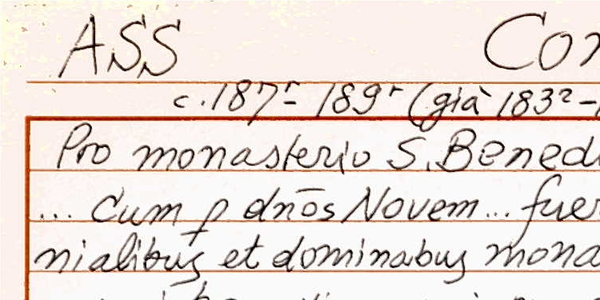 ASS Con
c. 187r - 189r (già 183
Pro monasterio S. Bened
... Cum p dnōs Novem... fuer
nialibus et dominabus mona